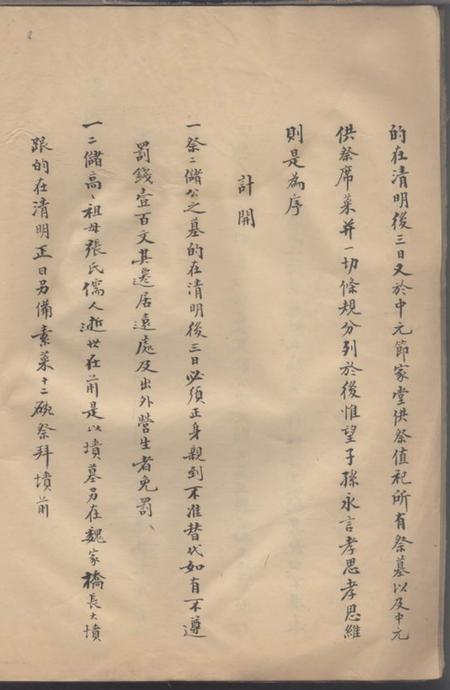 的在清明後三日又於中元節家堂供祭值祀所有祭墓以及中元
供祭席菜并一切條規分列於後惟望子孫永言孝思孝思維
則是為序
計開
一祭二儲公之墓的在清明後三日必須正身親到不准替代如有不遵
罰錢壹百文其遷居遠處及出外營生者免罰
一二儲高祖母張氏儒人逝世在前是以墳墓另在魏家橋長大墳
跟的在清明正日另備素菜十二碗祭拜墳前